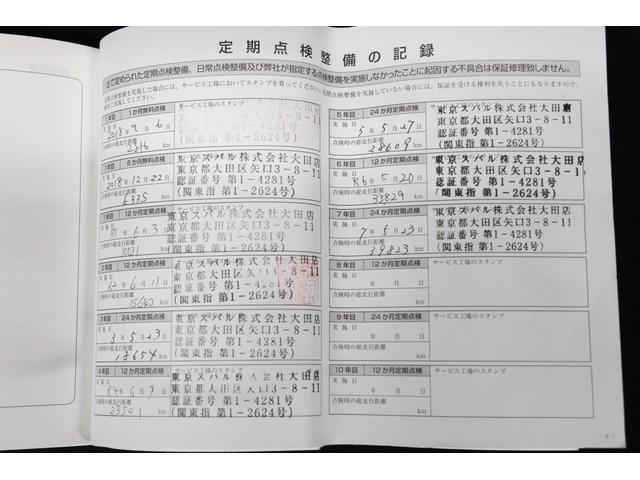 定期点検整備の記録
法で定められた定期点検整備、日常点検整備及び弊社が指定する点検整備を実施しなかったことに起因する不具合は保証修理致しません。
定期点検整備を実施した場合には、サービス工場においてスタンプを貰ってください。定期点検整備を実施していない場合には、保証を受ける権利を失うことにもなりますので、
実施してください。
1か月無料点検
サービス工場のスタンプ
2018年9月6日
2816 km
6か月無料点検
2018年12月22日
点検時の総走行距離
6335
東京スバル株式会社大田店
東京都大田区矢口3-8-11
認証番号 第1-4281号
(関東指 第1-2624号)
1年目 12か月定期点検
R1年6月3日
10031
東京スバル株式会社大田店
東京都大田区矢口3-8-11
認証番号 第1-4281号
(関東指 第1-2624号)
2年目 12か月定期点検
実施日
R2年6月11日
点検時の総走行距離
15640
東京スバル株式会社大田店
東京都大田区矢口3-8-11
認証番号 第1-4281号
(関東指 第1-2624号)
3年目 24か月定期点検
サービス工場のスタンプ
3年5月23日
点検時の総走行距離
18654 km
東京スバル株式会社大田店
東京都大田区矢口3-8-11
認証番号 第1-4281号
(関東指 第1-2624号)
4年目 12か月定期点検
R4年6月9日
点検時の総走行距離
23501 km
東京スバル株式会社大田店
東京都大田区矢口3-8-11
認証番号 第1-4281号
(関東指 第1-2624号)
5年目 24か月定期点検
サービス工場のスタンプ
実施日
5年5月27日
点検時の総走行距離
28609 km
東京スバル株式会社大田店
東京都大田区矢口3-8-11
認証番号 第1-4281号
(関東指 第1-2624号)
6年目 12か月定期点検
実施日
R6年5月20日
点検時の総走行距離
33829 km
東京スバル株式会社大田店
東京都大田区矢口3-8-11
認証番号 第1-4281号
(関東指 第1-2624号)
7年目 24か月定期点検
サービス工場のスタンプ
実施日
7年5月23日
点検時の総走行距離
39823 km
東京スバル株式会社大田店
東京都大田区矢口3-8-11
認証番号 第1-4281号
(関東指 第1-2624号)
8年目 12か月定期点検
サービス工場のスタンプ
実施日
年 月 日
点検時の総走行距離
km
9年目 24か月定期点検
サービス工場のスタンプ
実施日
年 月 日
点検時の総走行距離
km
10年目 12か月定期点検
サービス工場のスタンプ
実施日
年 月 日
点検時の総走行距離
km